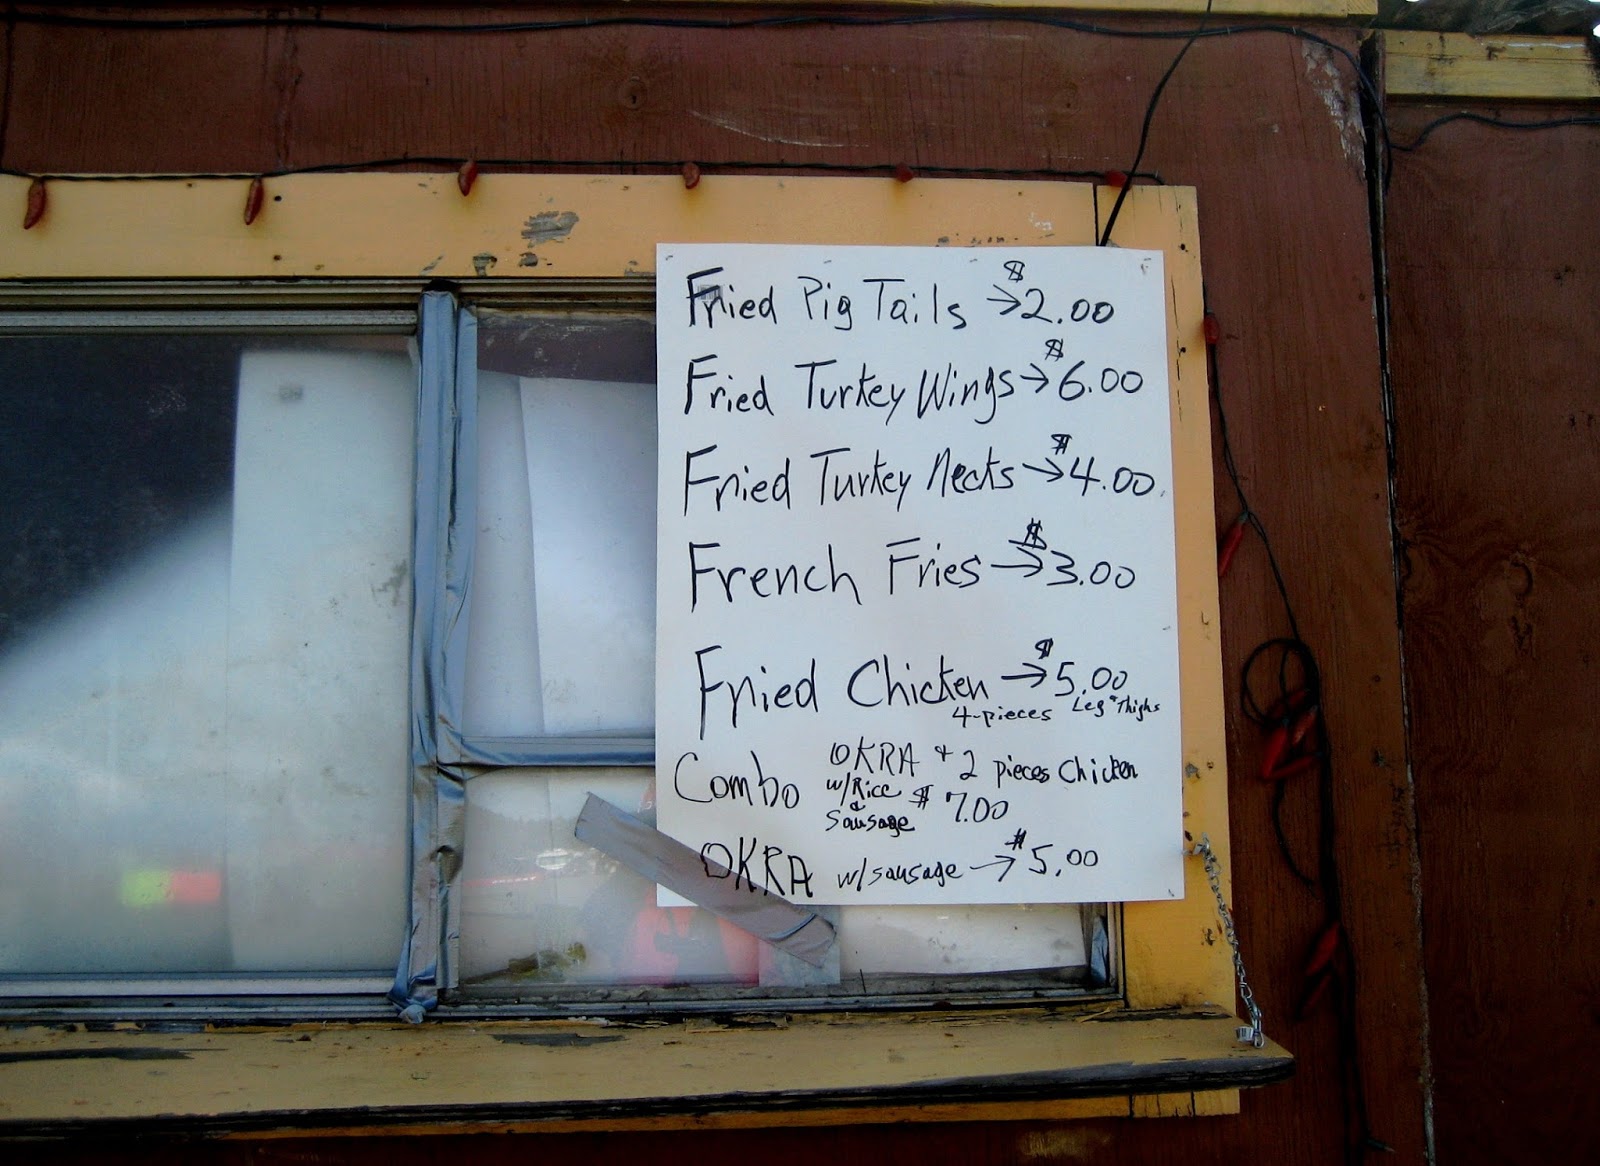 Fried Pig Tails → $2.00
Fried Turkey Wings → $6.00
Fried Turkey Necks → $4.00
French Fries → $3.00
Fried Chicken → $5.00
4-pieces Leg & Thighs
Combo OKRA + 2 pieces Chicken
w/Rice & Sausage $7.00
OKRA w/sausage → $5.00